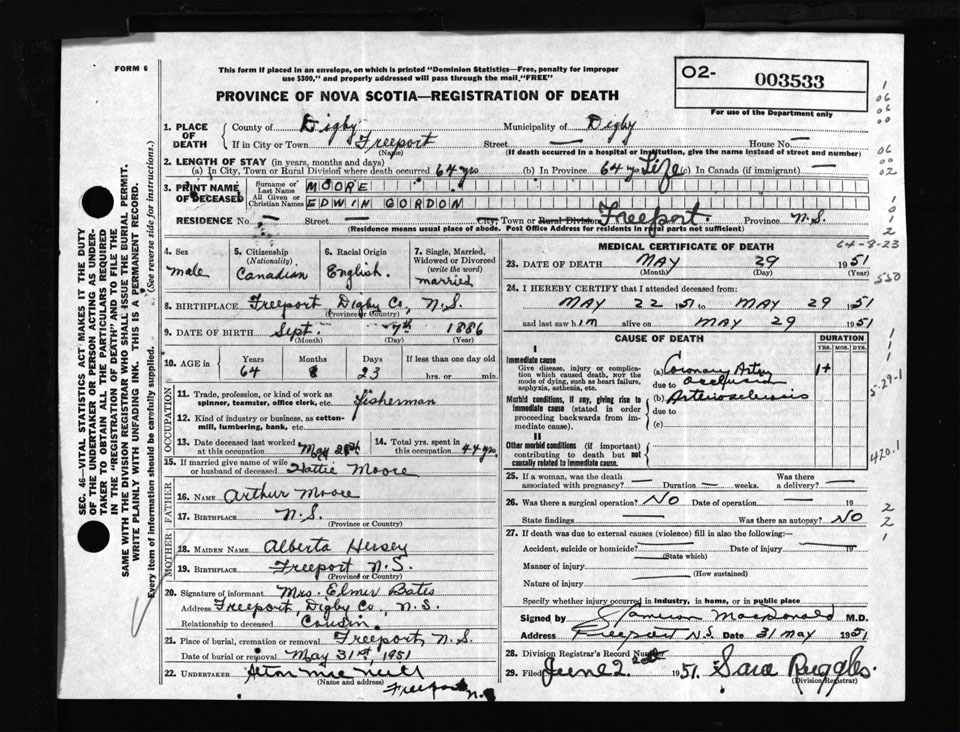 FORM 6
This form if placed in an envelope, on which is printed "Dominion Statistics—Free, penalty for improper
use $300," and properly addressed will pass through the mail "FREE"
O2- 003533
For use of the Department only
PROVINCE OF NOVA SCOTIA—REGISTRATION OF DEATH
1. PLACE OF DEATH
County of Digby Municipality of Digby
If in City or Town Freeport Street — House No. —
(Name) (If death occurred in a hospital or institution, give the name instead of street and number)
2. LENGTH OF STAY (in years, months and days)
(a) In City, Town or Rural Division where death occurred 64 yrs (b) In Province 64 yrs Life (c) In Canada (if immigrant) —
3. PRINT NAME OF DECEASED
Surname or Last Name MOORE
All Given or Christian Names EDWIN GORDON
RESIDENCE No. — Street — City, Town or Rural Division Freeport. Province N.S.
(Residence means usual place of abode. Post Office Address for residents in rural parts not sufficient)
4. Sex male
5. Citizenship (Nationality) Canadian
6. Racial Origin English.
7. Single, Married, Widowed or Divorced (write the word) married
8. BIRTHPLACE Freeport Digby Co, N.S.
(Province or Country)
9. DATE OF BIRTH Sept. 7th 1886
(Month) (Day) (Year)
10. AGE in Years 64 Months 8 Days 23 If less than one day old
hrs. or min.
OCCUPATION
11. Trade, profession, or kind of work as
spinner, teamster, office clerk, etc. fisherman
12. Kind of industry or business, as cotton-
mill, lumbering, bank, etc.
13. Date deceased last worked
at this occupation May 21st
14. Total yrs. spent in
this occupation 44 yrs
15. If married give name of wife
or husband of deceased Hattie Moore
FATHER
16. NAME Arthur Moore
17. BIRTHPLACE N.S.
(Province or Country)
MOTHER
18. MAIDEN NAME Alberta Hersey
19. BIRTHPLACE Freeport N.S.
(Province or Country)
20. Signature of informant Mrs. Elmer Bates
Address Freeport, Digby Co., N.S.
Relationship to deceased Cousin.
21. Place of burial, cremation or removal Freeport, N.S.
Date of burial or removal May 31st, 1951
22. UNDERTAKER Alton MacNeill
(Name and address) Freeport N.S.
MEDICAL CERTIFICATE OF DEATH
64-8-23
23. DATE OF DEATH MAY 29 1951
(Month) (Day) (Year)
550
24. I HEREBY CERTIFY that I attended deceased from:
MAY 22 1951 to MAY 29 1951
and last saw him alive on MAY 29 1951
CAUSE OF DEATH DURATION
YRS. MOS. DYS.
I
Immediate cause
Give disease, injury or complica-
tion which caused death, NOT the
mode of dying, such as heart failure,
asphyxia, asthenia, etc.
(a) Coronary Artery 1+
due to occlusion
Morbid conditions, if any, giving rise to
immediate cause (stated in order
proceeding backwards from im-
mediate cause).
(b) Arteriosclerosis
due to
(c)
II
Other morbid conditions (if important)
contributing to death but not
causally related to immediate cause.
5-29-1
420.1
25. If a woman, was the death
associated with pregnancy? — Duration — weeks. Was there
a delivery? —
26. Was there a surgical operation? NO Date of operation 19
State findings — Was there an autopsy? NO
27. If death was due to external causes (violence) fill in also the following:—
Accident, suicide or homicide? — Date of injury — 19
(State which)
Manner of injury —
(How sustained)
Nature of injury —
Specify whether injury occurred in industry, in home, or in public place
Signed by MacDonald M.D.
Address Freeport N.S. Date 31 May 1951
28. Division Registrar's Record Number
29. Filed June 2 1951. Sara Ruggles.
(Division Registrar)
SEC. 46—VITAL STATISTICS ACT MAKES IT THE DUTY
OF THE UNDERTAKER OR PERSON ACTING AS UNDER-
TAKER TO OBTAIN ALL THE PARTICULARS REQUIRED
IN THE "REGISTRATION OF DEATH" AND TO FILE THE
SAME WITH THE DIVISION REGISTRAR WHO SHALL ISSUE THE BURIAL PERMIT.
WRITE PLAINLY WITH UNFADING INK. THIS IS A PERMANENT RECORD.
Every item of information should be carefully supplied. (See reverse side for instructions.)